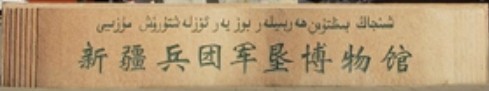 شىنجاڭ بىڭتۈەن ھەربىيلەر بوز يەر ئۆزلەشتۈرۈش مۇزىيى
新疆兵团军垦博物馆